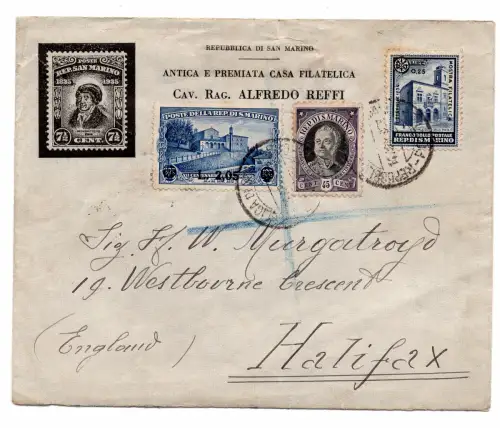 REPUBBLICA DI SAN MARINO
ANTICA E PREMIATA CASA FILATELICA
CAV. RAG. ALFREDO REFFI
POSTE
REP. SAN MARINO
1835 1935
7½ 7½
CENT.
POSTE DELLA REP. DI S. MARINO
2.05
REP. DI S. MARINO
45 CEN.
0,25
FILATELICA
FRANCOBOLLO POSTALE
REP. DI S. MARINO
Sig. H. W. Murgatroyd
19. Westbourne Crescent
(England) Halifax